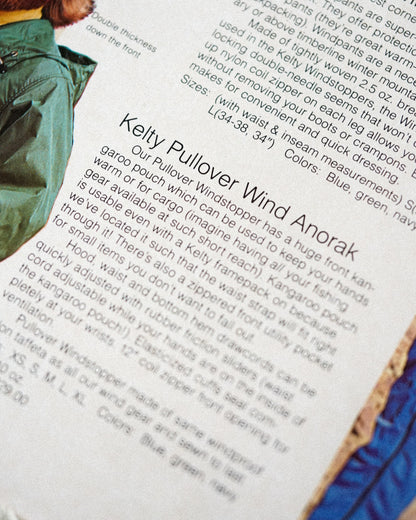 Double thickness
down the front
pants are super
pants (they're great warm
backpacking) Windpants are a nec
ary on or above timberline winter mounta
Made of tightly woven 2.5 oz. bre
used in the Kelty Windstoppers, the Win
locking double-needle seems that won't
up nylon coil zipper on each leg allows yo
without removing your boots or crampons. E
makes for convenient and quick dressing.
Sizes: (with waist & inseam measurements) S
L(34-38, 34") Colors: Blue, green, navy
Kelty Pullover Wind Anorak
Our Pullover Windstopper has a huge front kan-
garoo pouch which can be used to keep your hands
warm or for cargo (imagine having all your fishing
gear available at such short reach). Kangaroo pouch
is usable even with a Kelty framepack on because
we've located it such that the waist strap will fit right
through it! There's also a zippered front utility pocket
for small items you don't want to fall out.
Hood, waist and bottom hem drawcords can be
quickly adjusted with rubber friction sliders (waist
cord adjustable while your hands are on the inside of
the kangaroo pouch!). Elasticized cuffs seal com-
pletely at your wrists. 12" coil zipper front opening for
ventilation.
Pullover Windstopper made of same windproof
on taffeta as all our wind gear and sewn to last
XS, S, M, L, XL Colors: Blue, green, navy,
oz.
29.00